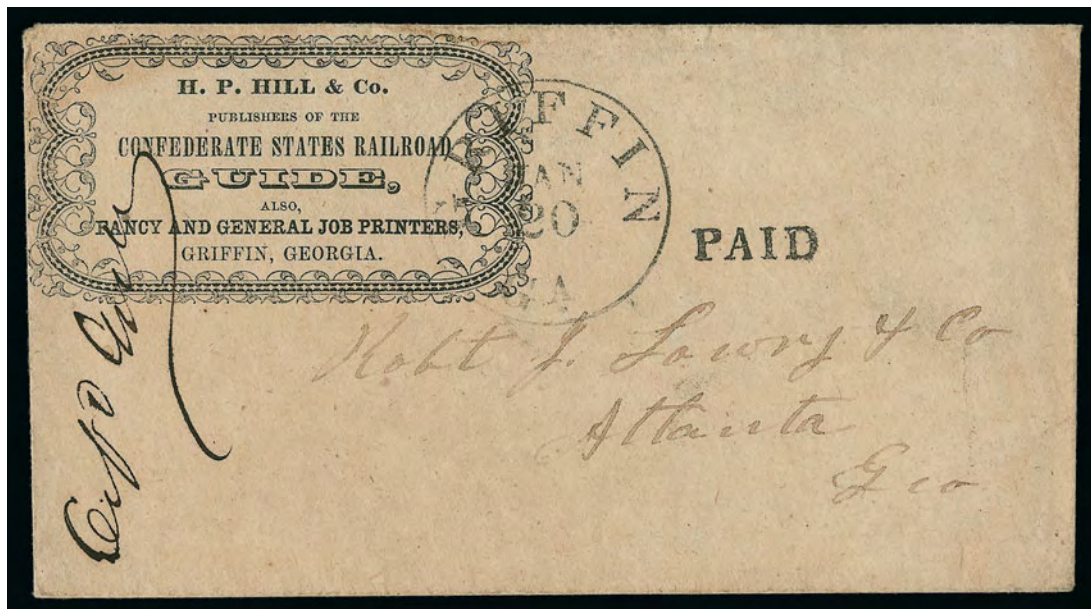 H. P. HILL & Co.
PUBLISHERS OF THE
CONFEDERATE STATES RAILROAD
GUIDE,
ALSO,
FANCY AND GENERAL JOB PRINTERS,
GRIFFIN, GEORGIA.
GRIFFIN
JAN
20
GA
PAID
Robt J. Lowry & Co
Atlanta
Geo